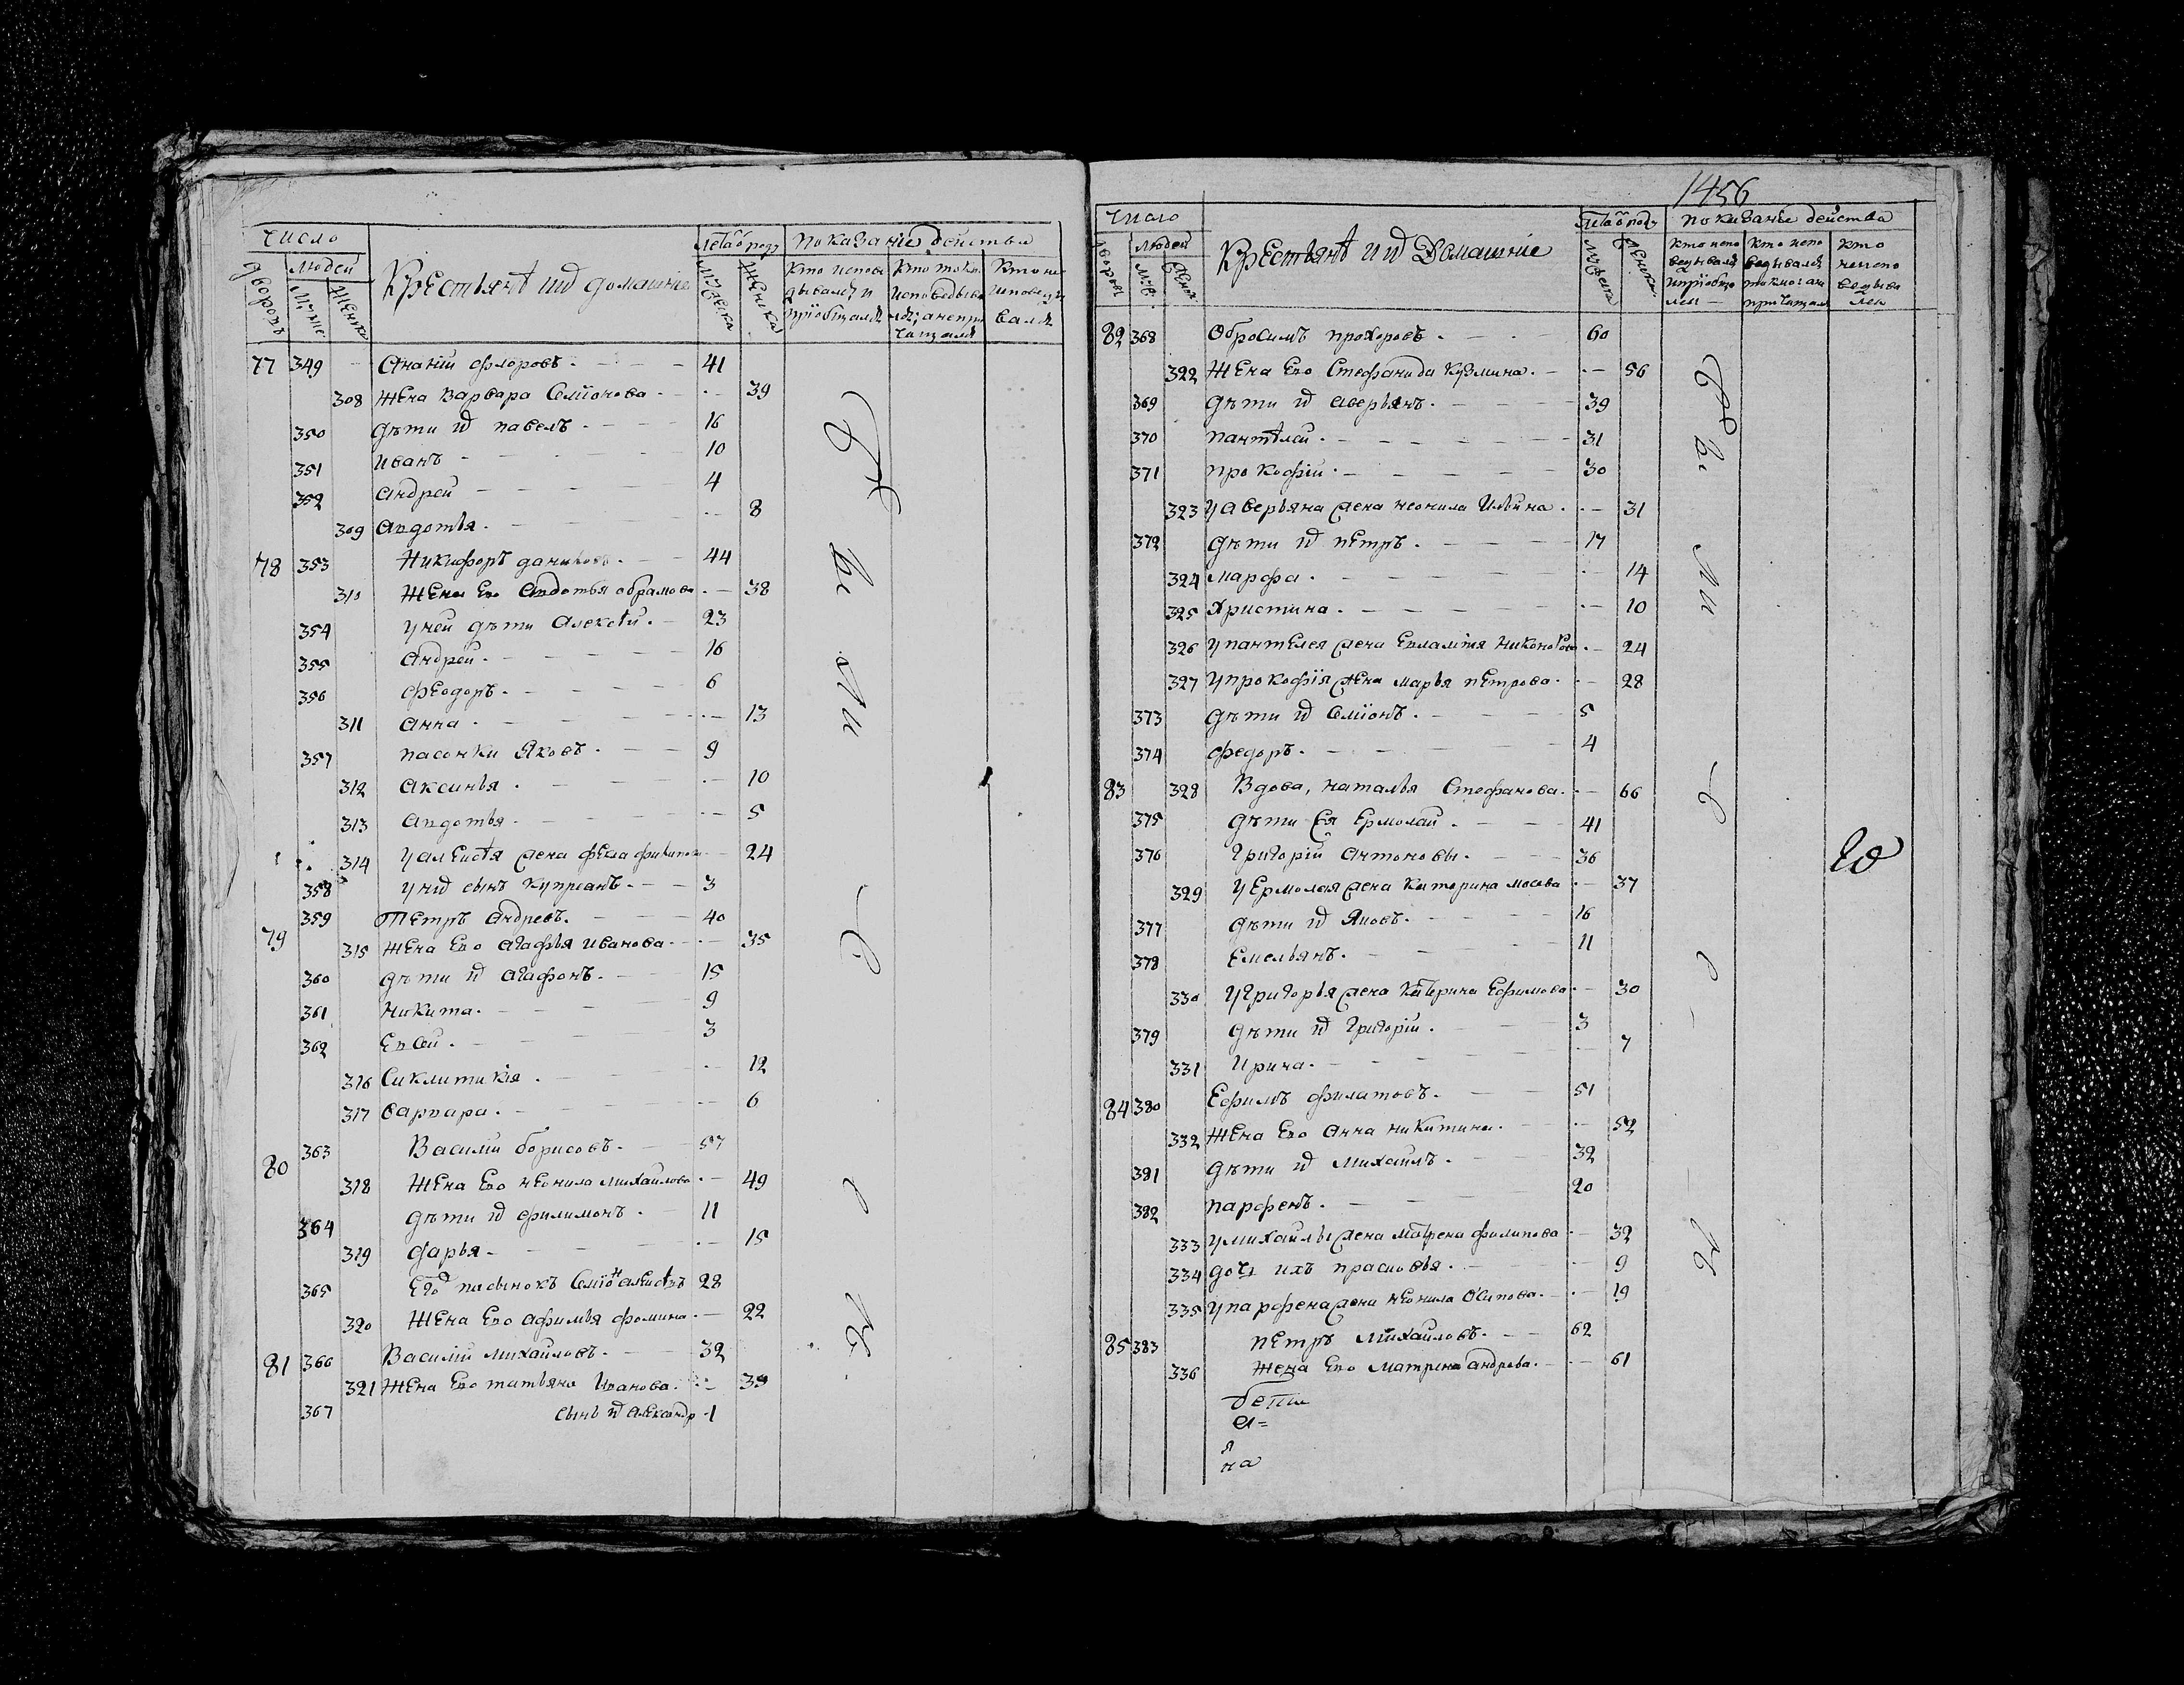 число
Лета ѿ роду
показание действа
дворовъ
людей
мужес
женска
Крестьянѣ и ихъ домашние
мужеска
женска
кто исповедывалъ и приобщалъ
кто токмо исповедывалъ а не причащалъ
кто не исповедывалъ
77 349 Ананий флоровъ 41
308 Жена Варвара Семионова 39
350 дѣти ихъ павелъ 16
351 Иванъ 10
352 Андрей 4
309 Авдотья 8
78 353 Никифоръ даниловъ 44
310 Жена Ево Авдотья абрамова 38
354 у ней дѣти Алексѣй 23
355 Андрей 16
356 феодоръ 6
311 Анна 13
357 пасонки Яковъ 9
312 Аксинья 10
313 Авдотья 5
314 У алексѣя жена филипова 24
358 у нихъ сынъ Купреанъ 3
79 359 Петръ Андревъ 40
315 Жена Ево агафья Иванова 35
360 дѣти ихъ агафонъ 15
361 Никита 9
362 Евсей 3
316 Сиклитикия 12
317 варвара 6
80 363 Василий борисовъ 57
318 Жена Ево неонила михайлова 49
364 дѣти ихъ филимонъ 11
319 дарья 15
365 Ево пасынокъ Семионъ алексѣвъ 28
320 Жена Ево афимья фомина 22
81 366 Василий михайловъ 32
321 Жена Ево татьяна Иванова 39
367 сынъ ихъ александр 1
Б Ы Л И
1456
число
Лета ѿ роду
показание действа
дворовъ
людей
муж
женск
Крестьянѣ и ихъ Домашние
мужеска
женска
кто исповедывался и приобщался
кто исповедывался токмо а не причащался
кто не исповедывался
82 368 Обросимъ прохоровъ 60
322 Жена Ево Стефанида Кузмина 56
369 дѣти ихъ аверьянъ 39
370 пантѣлей 31
371 прокофий 30
323 У аверьяна жена неонила Ильина 31
372 дѣти ихъ петръ 17
324 марфа 14
325 Христина 10
326 У пантелея жена Евлампия никонова 24
327 У прокофия жена марья петрова 28
373 дѣти ихъ Семионъ 5
374 федоръ 4
83 328 Вдова, наталья Стефанова 66
375 дѣти Ея Ермолай 41
376 Григорий антоновы 36
329 У Ермолая жена катерина 37
377 дѣти ихъ Яковъ 16
378 Емельянъ 11
330 У Григорья жена катерина Ефимова 30
379 дѣти ихъ Григорий 3
331 Ирина 7
84 380 Ефимъ филатовъ 51
332 Жена Ево Анна никитина 52
381 дѣти ихъ Михаилъ 32
382 парфенъ 20
333 У михайлы жена матрена филипова 32
334 дочь ихъ прасковья 9
335 У парфена жена неонила Осипова 19
85 383 петръ Михайловъ 62
336 Жена Ево Матрена андрева 61
на
Б Ы Л И